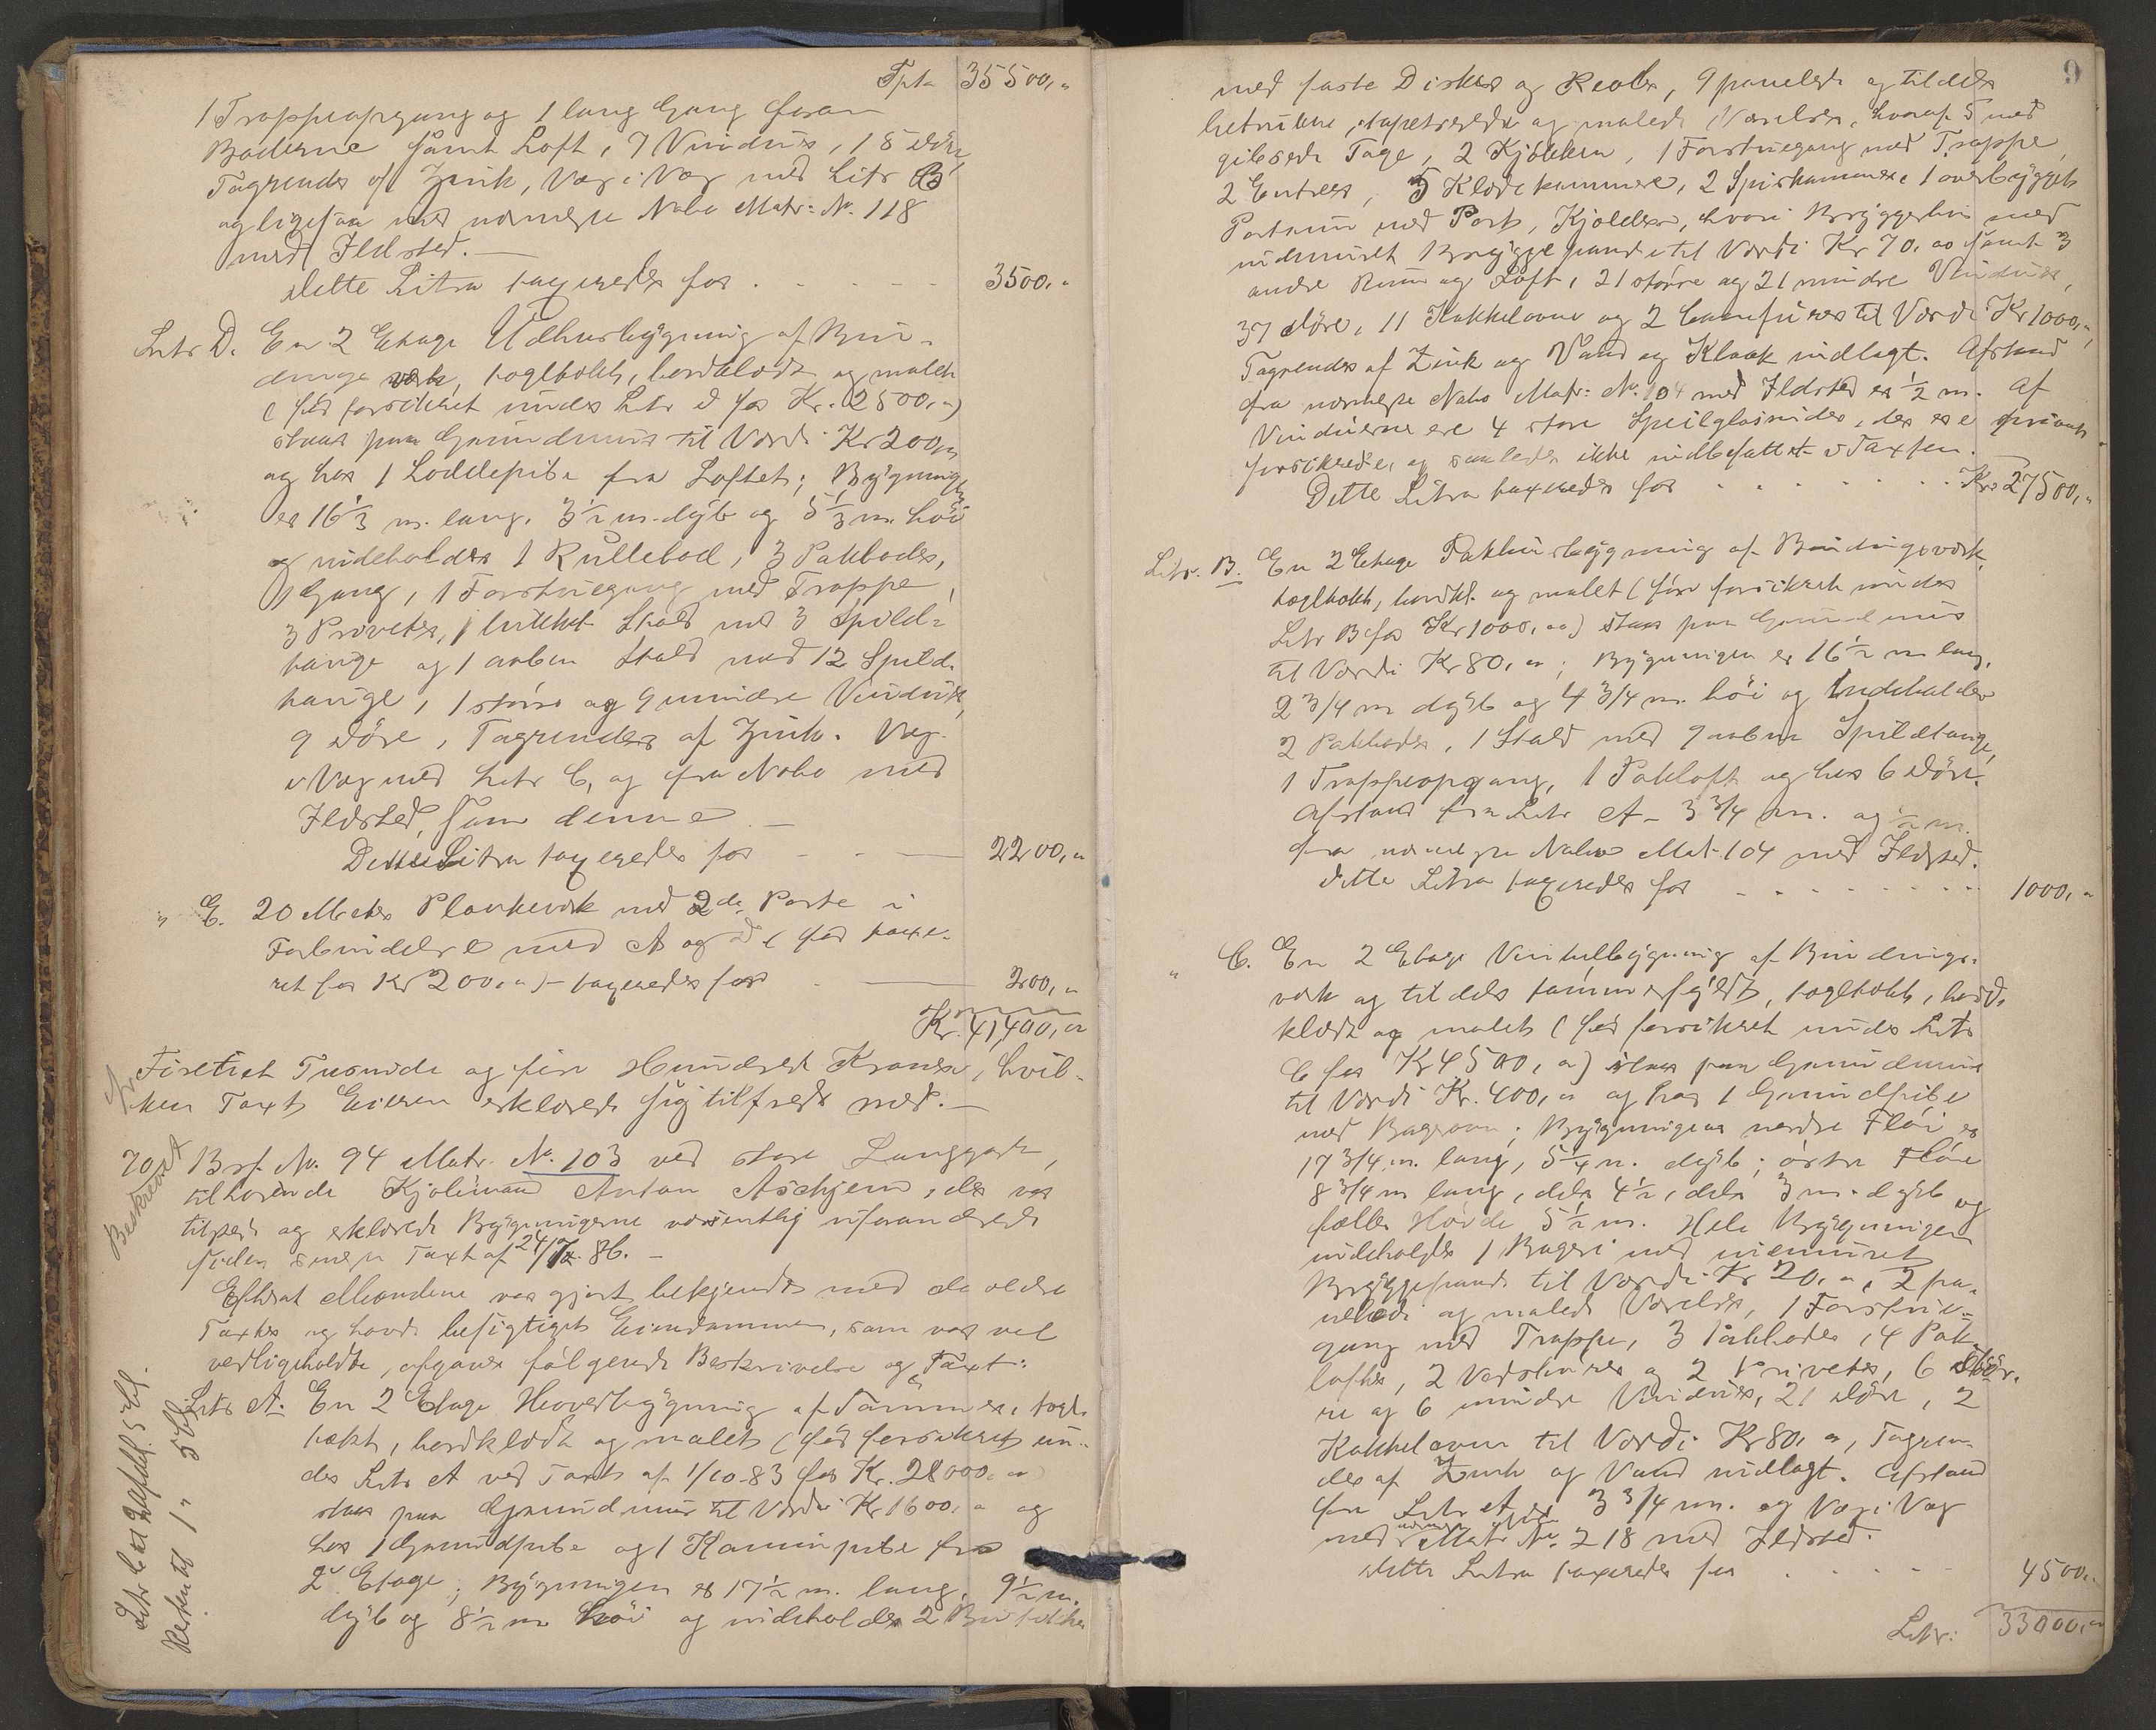 Tpt. 35500,"
1 Trappeopgang og 1 lang Gang foran
Boderne samt Loft, 7 Vinduer, 15 Döre,
Tagrender af Zink, Væg i Væg med Litr B
og ligesaa med nærmeste Nabo Matr: No. 118
med Ildsted.
Dette Litra taxeredes for . - - - - 3500,"
Litr D. En 2 Etage Udhusbygning af Bin-
dingsværk, tagltækt, bordklædt og malet
(før forsikret under Litr D for Kr. 2500,")
staar paa Grundmur til Værdi Kr 200,"
og har 1 Loddepibe fra Loftet; Bygningen
er 16 1/3 m. lang, 3 1/2 m. dyb og 5 1/3 m. høi
og indeholder 1 Rullebod, 3 Pakboder,
1 Gang, 1 Forstuegang med Trappe,
3 Priveter, 1 lukket Stald med 3 Spild-
tauge og 1 aaben Stald med 12 Spild-
tauge, 1 større og 9 mindre Vinduer,
9 Döre, Tagrender af Zink. Væg
i Væg med Litr C, og fra Nabo med
Ildsted, som denne
Dette Litra taxeredes for - - 2200,"
" E. 20 Meter Plankeværk med 2de Porte i
Forbindelse med A og D (før taxe-
ret for Kr 200,") - taxeredes for 200,"
Kr. 41,400,"
Firetiet Tusinde og fire Hundrede Kroner, hvil-
ken Taxt Eieren erklærede sig tilfreds med.
70, Brf. No. 94 Matr. No. 103 ved store Langgade,
Beskrevet
tilhørende Kjøbmand Anton Aschjem, der var
tilstede og erklærede Bygningerne væsentlig uforandrede
siden Taxt af 24/7 86. -
Efterat Mændene var gjort bekjendt med de ældre
Taxter og havde besigtiget Eiendommen, som var vel
vedligeholdt, afgaves følgende Beskrivelse og Taxt:
Litr A. En 2 Etage Hovedbygning af Tømmer, tagl-
tækt, bordklædt og malet (før forsikret un-
der Litr A ved Taxt af 1/10-83 for Kr. 28000,")
staar paa Grundmur til Værdi Kr 1600," og
har 1 Grundpibe og 1 Kaminpibe fra
2. Etage; Bygningen er 17 1/2 m. lang, 9 1/2 m.
dyb og 8 1/2 m høi og indeholder 2 Butikker
9
med faste Diske og Reoler, 9 panelede og tildels
betrukne, tapetserede og malede Værelser, hvoraf 5 med
gibsede Tage, 2 Kjøkken, 1 Forstuegang med Trappe,
2 Entreer, 5 Klædekammere, 2 Spiskammere, 1 overbygget
Portrum med Port, Kjælder, hvori Bryggerhus med
indmuret Bryggepande til Værdi Kr 70,00 samt 3
andre Rum og Loft, 21 større og 21 mindre Vinduer,
37 Döre, 11 Kakkelovne og 2 Comfurer til Værdi Kr 1000,",
Tagrender af Zink og Vand og Kloak indlagt. Afstand
fra nærmeste Nabo Matr: No. 104 med Ildsted er 1/2 m. Af
Vinduerne ere 4 store Speilglasruder, der ere privat
forsikrede, og saaledes ikke indbefattet i Taxten.
Dette Litra taxeredes for . . . . . . . . Kr. 27500,"
Litr. B. En 2 Etage Pakhusbygning af Bindingsværk,
tagltækt, bordkl. og malet (før forsikret under
Litr B for Kr 1000,00) staar paa Grundmur
til Værdi Kr 80,"; Bygningen er 16 1/2 m lang,
2 3/4 m dyb og 4 3/4 m. høi og indeholder
2 Pakboder, 1 Stald med 9 aabne Spildtauge,
1 Trappeopgang, 1 Pakloft og har 6 Döre.
Afstand fra Litr A - 3 3/4 m. og 1/2 m.
fra nærmeste Nabo Mat. 104 med Ildsted.
Dette Litra taxeredes for - - - - - - 1000,"
" C. En 2 Etage Vinkelbygning af Bindings-
værk og tildels tømmerfyldt, tagltækt, bord-
klædt og malet (før forsikret under Litr
C for Kr 4500,") staar paa Grundmur
til Værdi Kr. 400," og har 1 Grundpibe
med Bagerovn; Bygningens nordre Fløi er
17 3/4 m. lang, 5 1/4 m. dyb; østre Fløi
8 3/4 m lang, dels 4 1/2, dels 3 m. dyb og
fælles Høide 5 1/2 m. Hele Bygningen
indeholder 1 Bageri med indmuret
Bryggepande til Værdi Kr 20,", 2 pa-
nelede og malede Værelser, 1 Forstue-
gang med Trappe, 3 Pakboder, 4 Pak-
lofter, 2 Vedskurer og 2 Priveter, 6 stör-
re og 6 mindre Vinduer, 21 Döre, 2
Kakkelovne til Værdi Kr 80,", Tagren-
der af Zink og Vand indlagt. Afstand
fra Litr A er 3 3/4 m. og Væg i Væg
med Matr No. 218 med Ildsted.
Dette Litra taxeredes for . . . . 4500,"
Litr: 33000,"